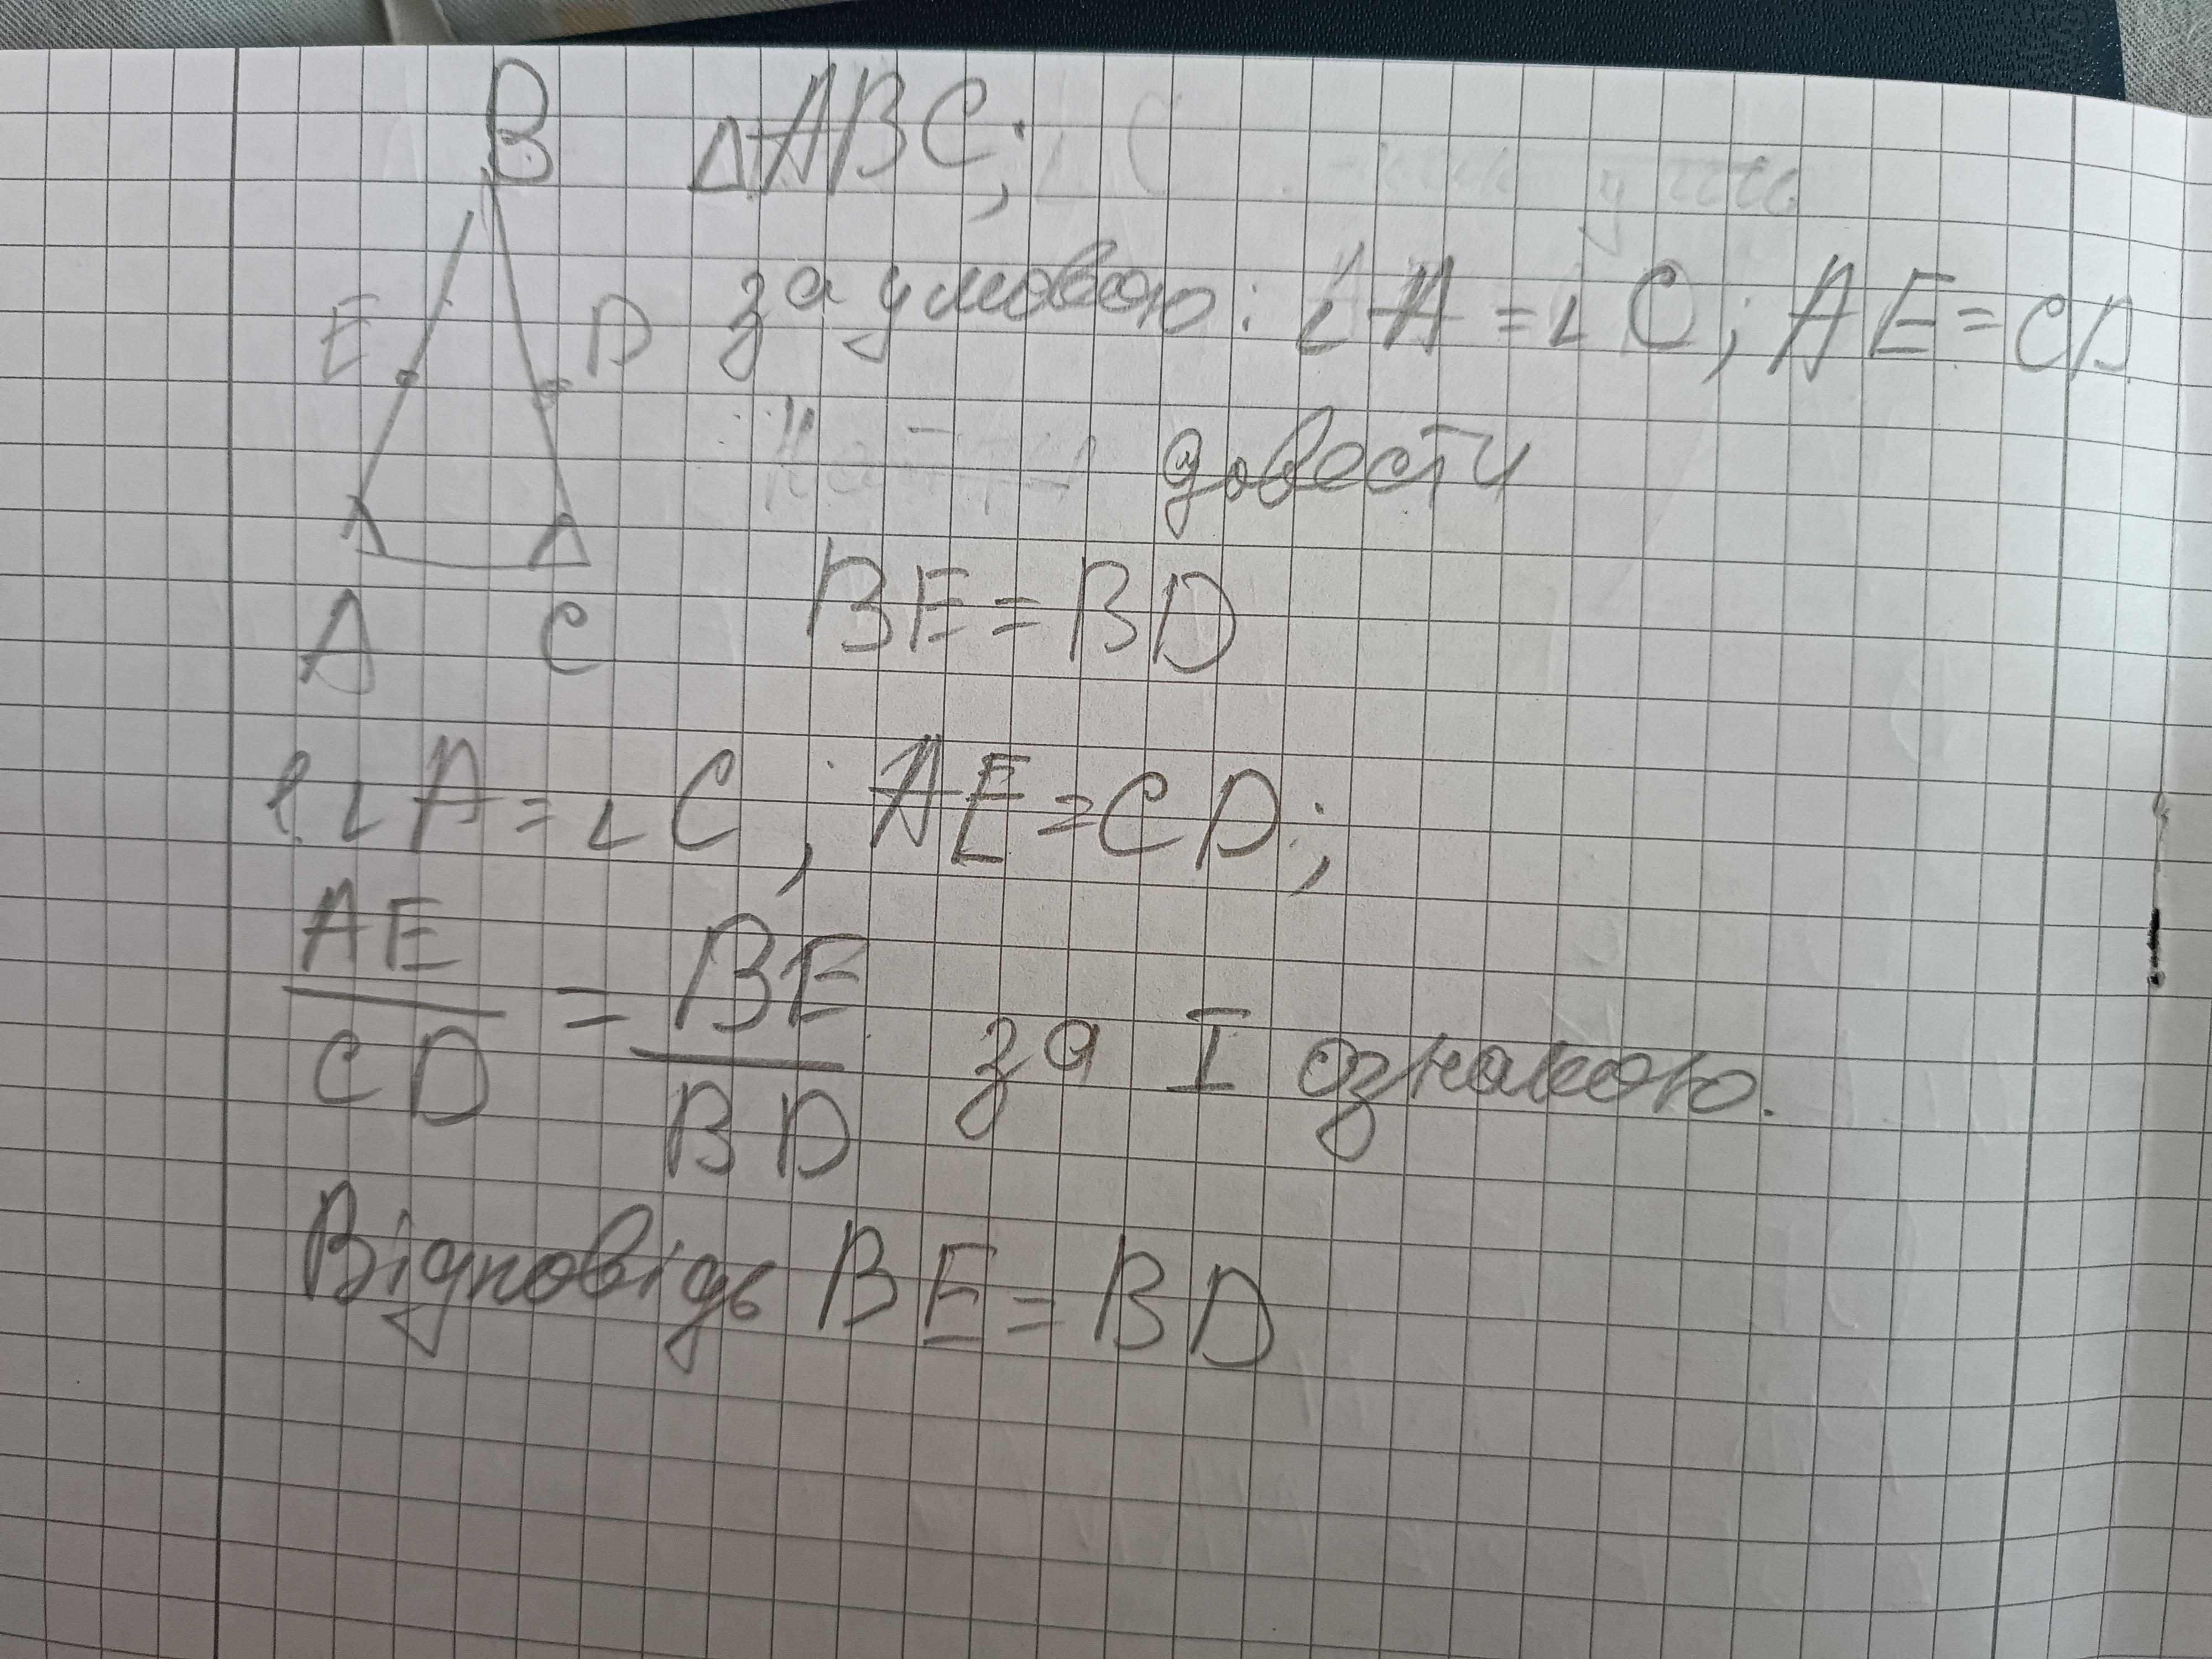 B
ΔABC;
E
D
за умовою: ∠A = ∠C; AE = CD
довести
A
C
BE = BD
1. ∠A = ∠C; AE = CD;
AE/CD = BE/BD за I ознакою.
Відповідь BE = BD